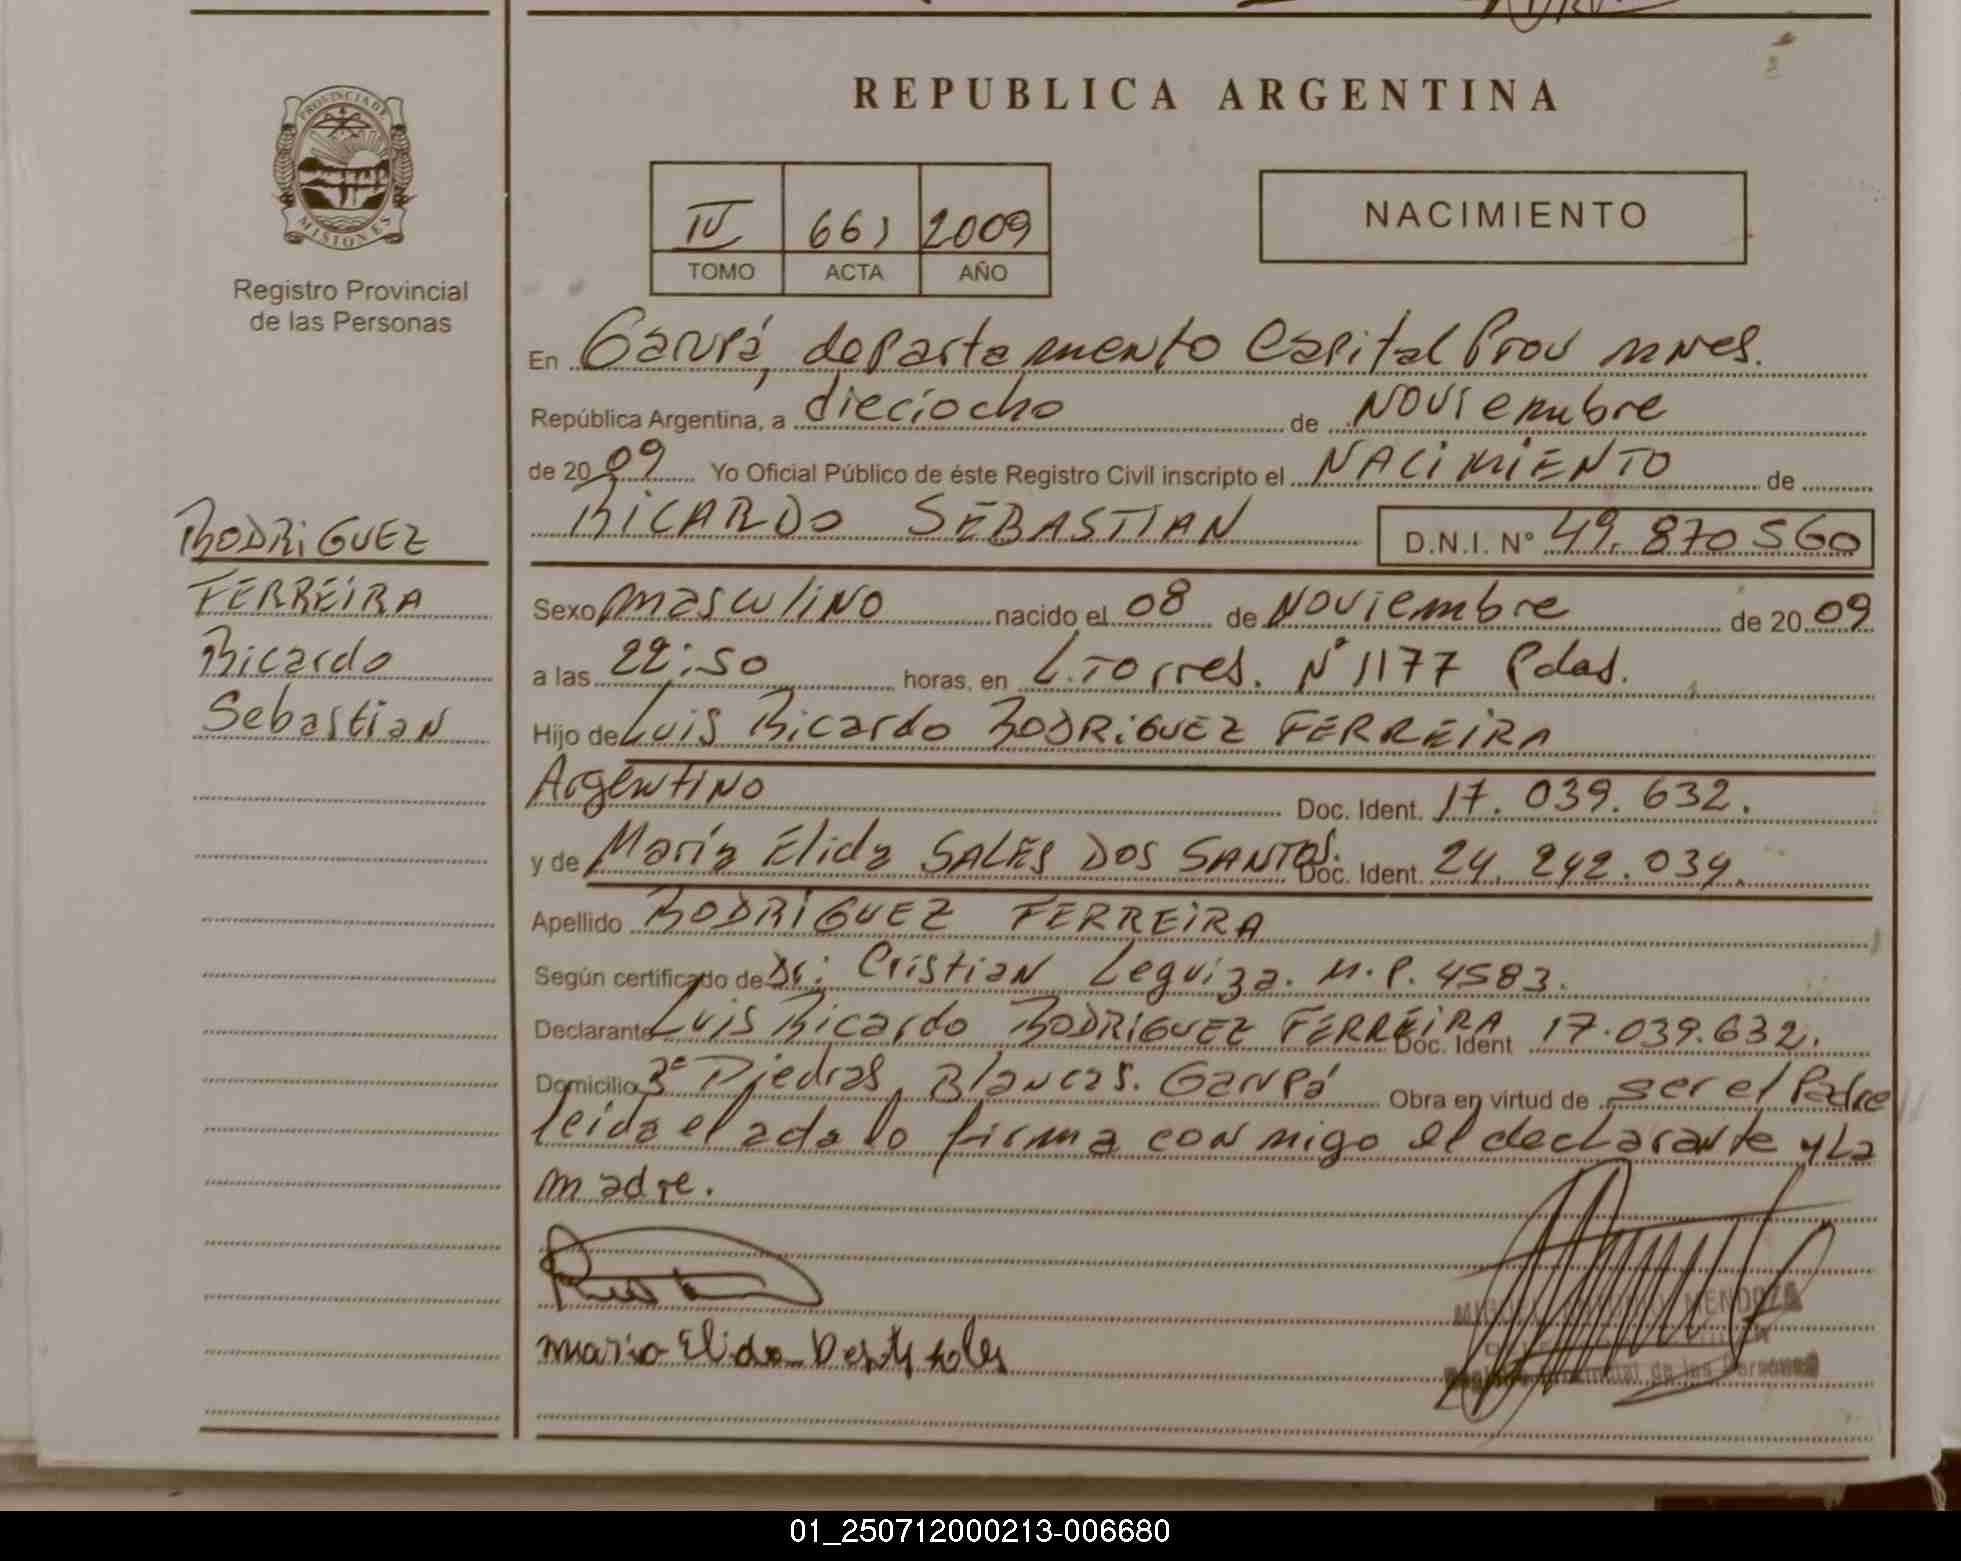 REPUBLICA ARGENTINA
PROVINCIA DE
MISIONES
Registro Provincial
de las Personas
IV 661 2009
TOMO ACTA AÑO
NACIMIENTO
En Garupá, departamento Capital Prov mnes.
República Argentina, a dieciocho de Noviembre
de 2009 Yo Oficial Público de éste Registro Civil inscripto el NACIMIENTO de
RICARDO SEBASTIAN D.N.I. N° 49.870560
RODRIGUEZ
FERREIRA
Ricardo
Sebastian
Sexo masculino nacido el 08 de Noviembre de 2009
a las 22:50 horas, en L.Torres. N° 1177 Pdas.
Hijo de Luis Ricardo RODRIGUEZ FERREIRA
Argentino Doc. Ident. 17.039.632.
y de María Elida SALES DOS SANTOS. Doc. Ident. 24.242.034.
Apellido RODRIGUEZ FERREIRA
Según certificado de Dr: Cristian Leguiza. M.P. 4583.
Declarante Luis Ricardo RODRIGUEZ FERREIRA Doc. Ident 17.039.632.
Domicilio Piedras Blancas. Garupá Obra en virtud de ser el Padre
leida el acta lo firma con migo el declarante y La
madre.
Maria Elida
MENDOZA
Registro Provincial de las Personas
01_250712000213-006680